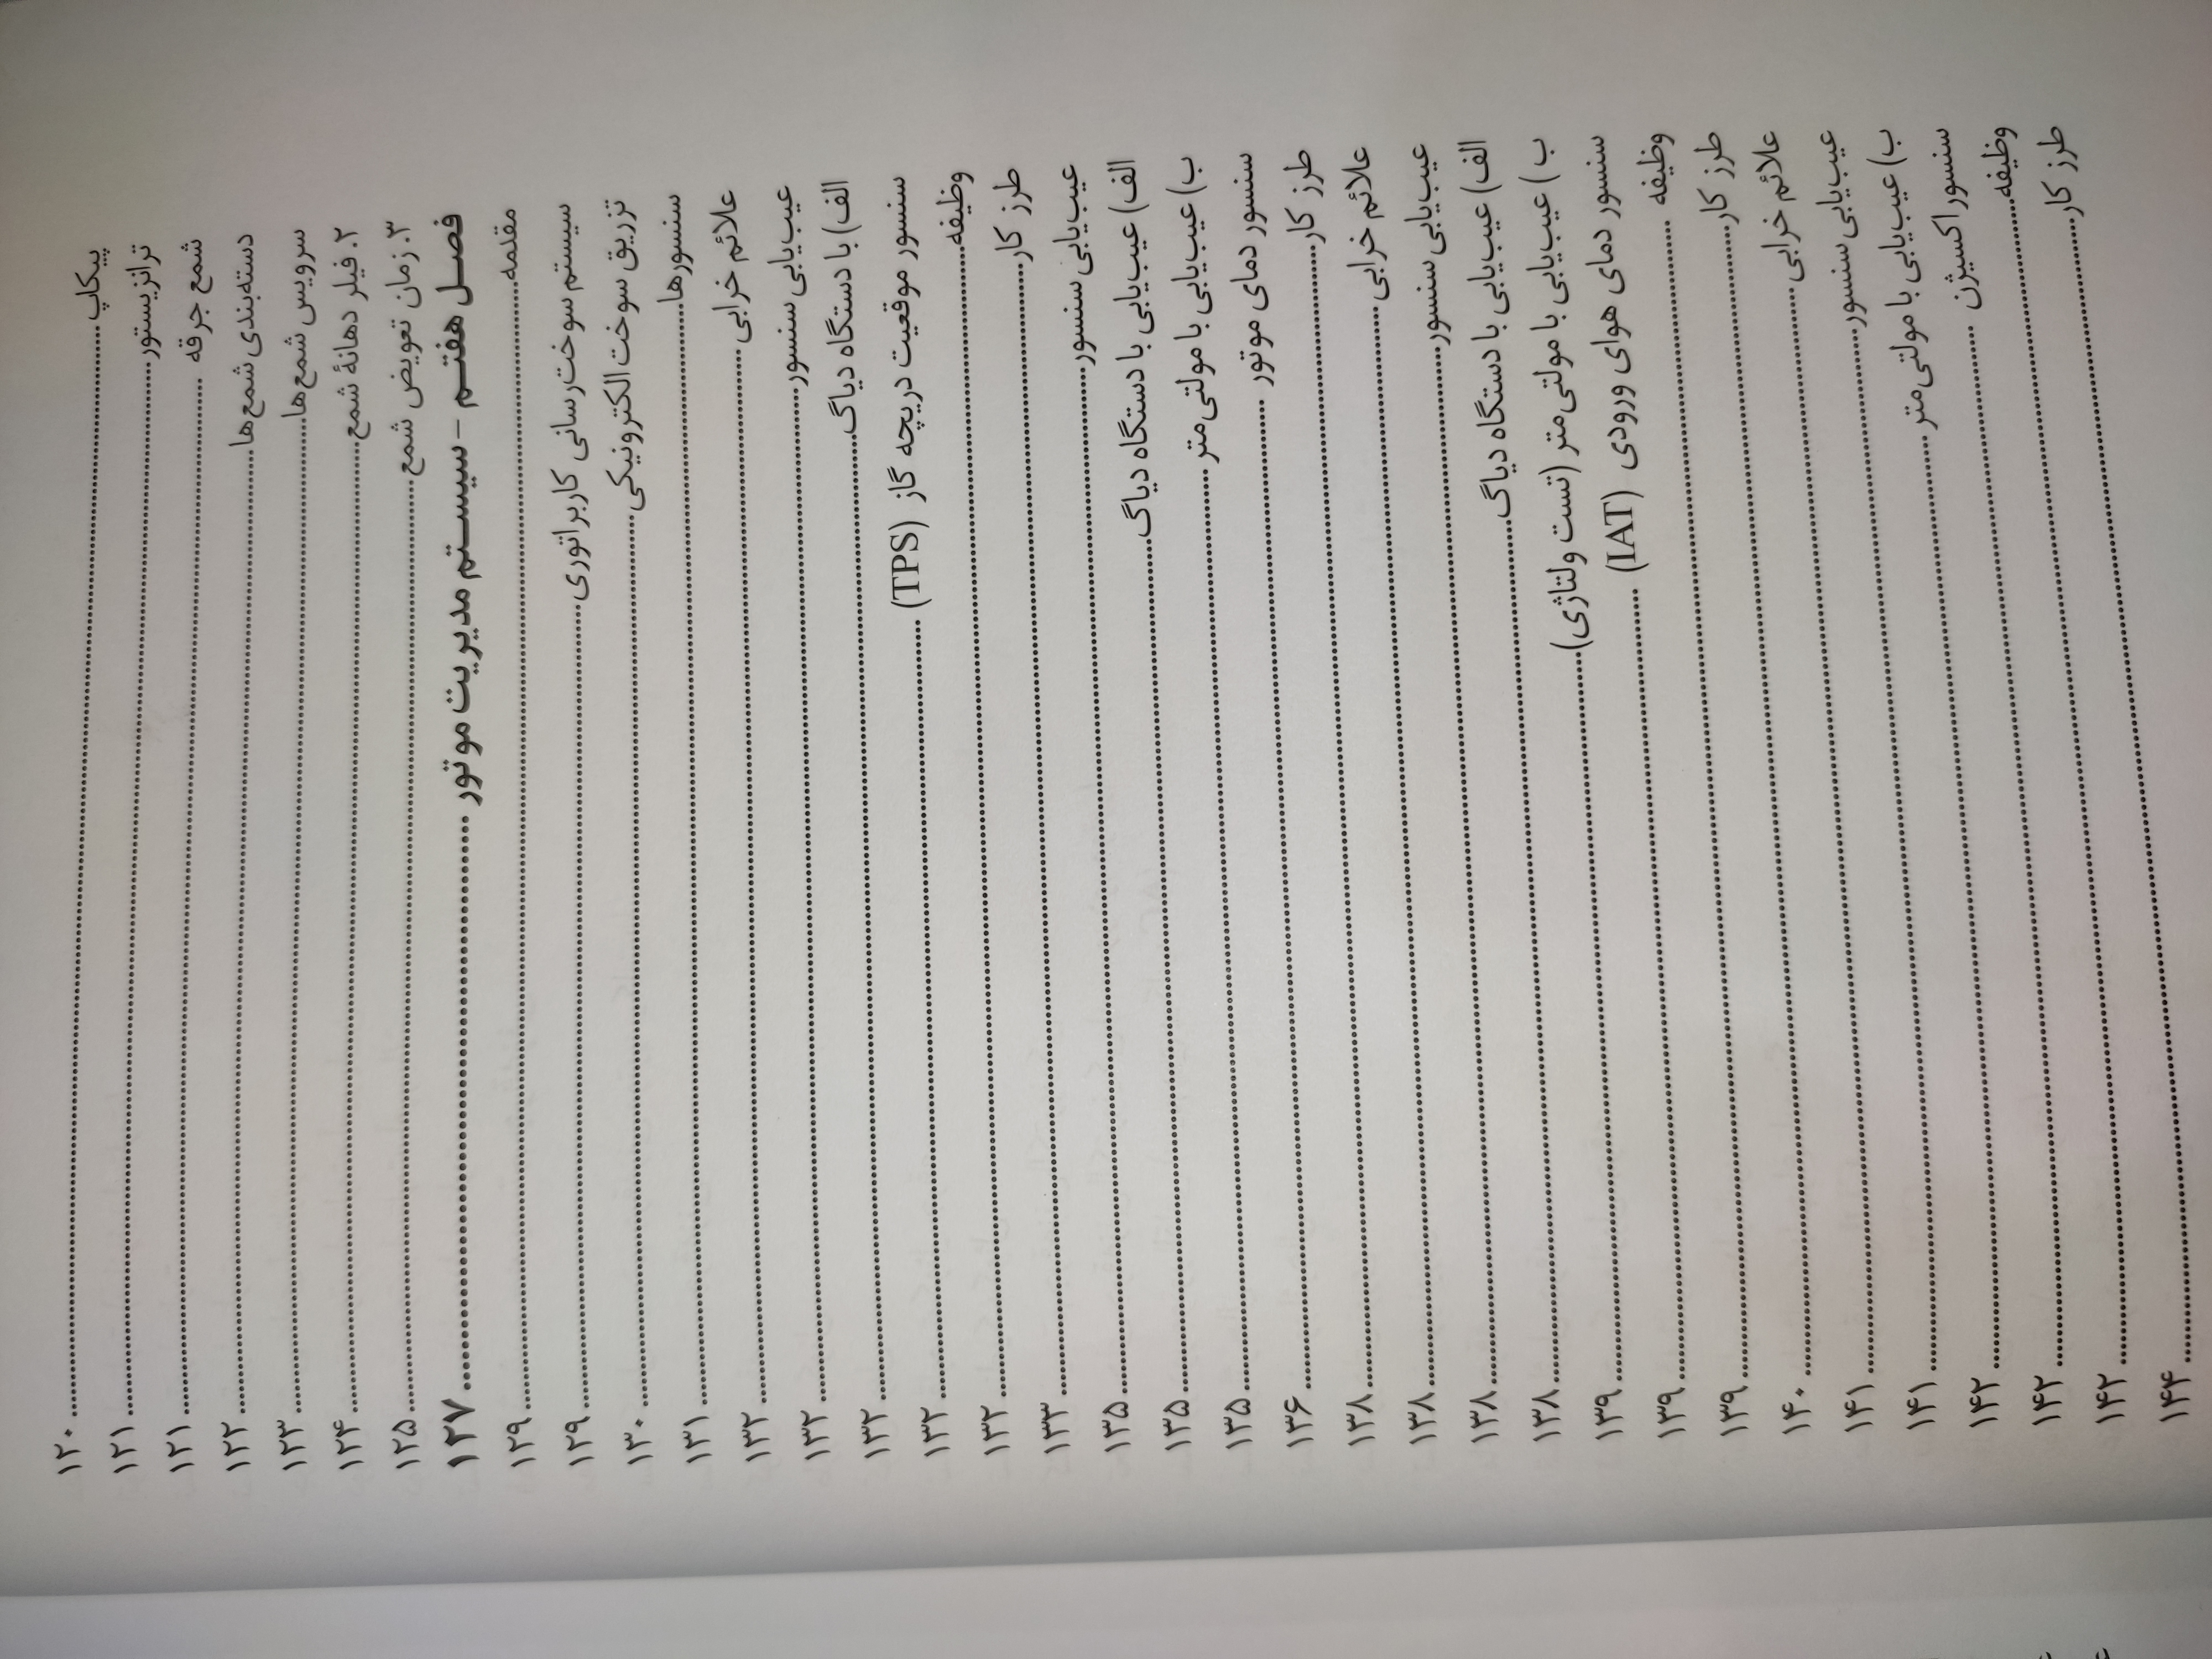 پیکاپ ........ ۱۲۰
ترانزیستور ........ ۱۲۱
شمع جرقه ........ ۱۲۱
دسته‌بندی شمع‌ها ........ ۱۲۲
سرویس شمع‌ها ........ ۱۲۳
۲. فیلر دهانهٔ شمع ........ ۱۲۴
۳. زمان تعویض شمع ........ ۱۲۵
فصل هفتم – سیستم مدیریت موتور ........ ۱۲۷
مقدمه ........ ۱۲۹
سیستم سوخت‌رسانی کاربراتوری ........ ۱۲۹
تزریق سوخت الکترونیکی ........ ۱۳۰
سنسورها ........ ۱۳۱
علائم خرابی ........ ۱۳۲
عیب‌یابی سنسور ........ ۱۳۲
الف) با دستگاه دیاگ ........ ۱۳۲
سنسور موقعیت دریچه گاز (TPS) ........ ۱۳۲
وظیفه ........ ۱۳۲
طرز کار ........ ۱۳۳
عیب‌یابی سنسور ........ ۱۳۵
الف) عیب‌یابی با دستگاه دیاگ ........ ۱۳۵
ب) عیب‌یابی با مولتی‌متر ........ ۱۳۵
سنسور دمای موتور ........ ۱۳۶
طرز کار ........ ۱۳۸
علائم خرابی ........ ۱۳۸
عیب‌یابی سنسور ........ ۱۳۸
الف) عیب‌یابی با دستگاه دیاگ ........ ۱۳۸
ب) عیب‌یابی با مولتی‌متر (تست ولتاژی) ........ ۱۳۹
سنسور دمای هوای ورودی (IAT) ........ ۱۳۹
وظیفه ........ ۱۳۹
طرز کار ........ ۱۴۰
علائم خرابی ........ ۱۴۱
عیب‌یابی سنسور ........ ۱۴۱
ب) عیب‌یابی با مولتی‌متر ........ ۱۴۲
سنسور اکسیژن ........ ۱۴۲
وظیفه ........ ۱۴۲
طرز کار ........ ۱۴۴